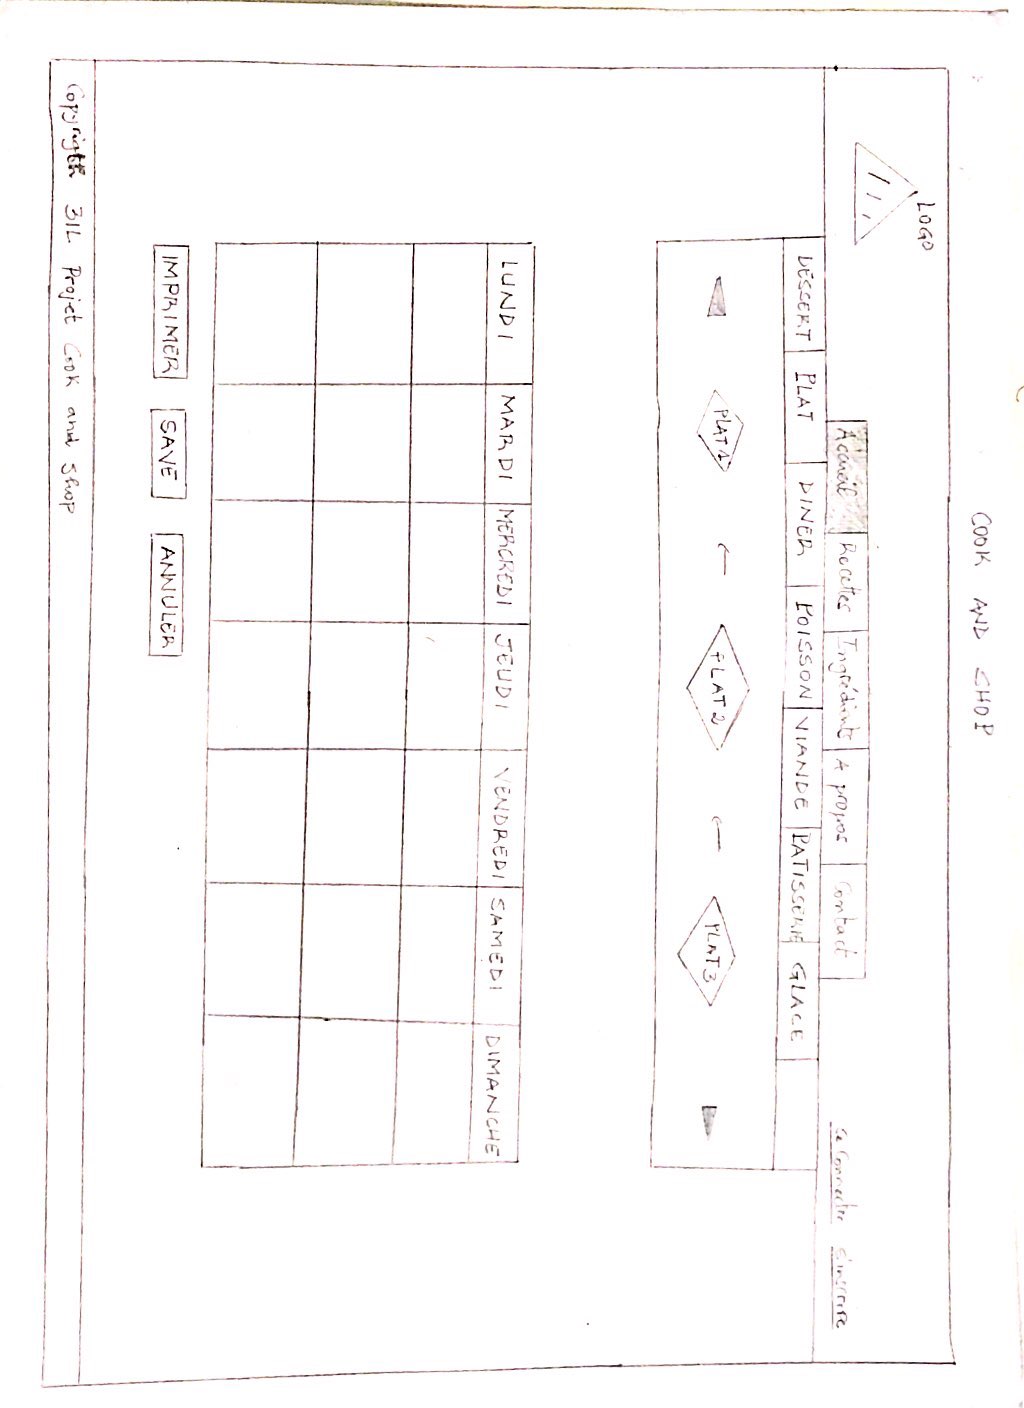 COOK AND SHOP
LOGO
Se Connecter S'inscrire
Accueil Recettes Ingrédients A propos Contact
DESSERT PLAT DINER POISSON VIANDE PATISSERIE GLACE
PLAT 1 PLAT 2 PLAT 3
LUNDI MARDI MERCREDI JEUDI VENDREDI SAMEDI DIMANCHE
IMPRIMER SAVE ANNULER
Copyrigth 3IL Projet Cook and Shop